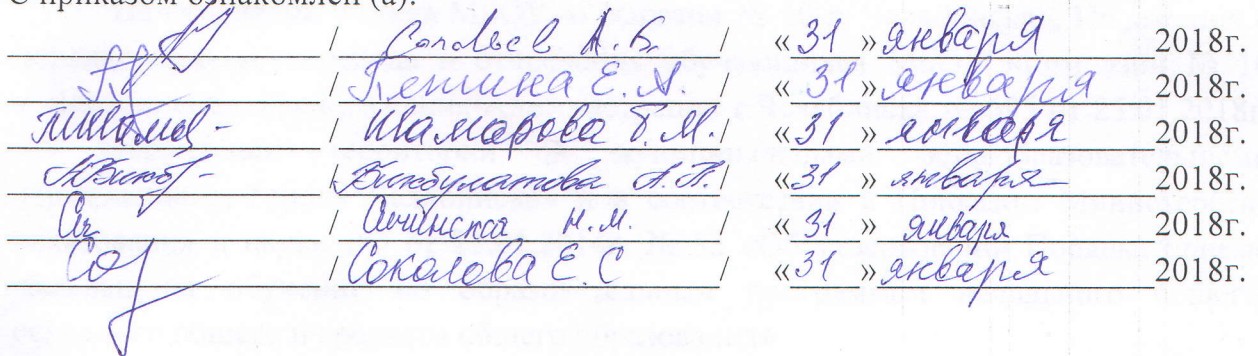 С приказом ознакомлен (а):
/ Соловьев А.В. / «31» января 2018г.
/ Пенина Е.А. / «31» января 2018г.
/ Шамарова Т.М. / «31» января 2018г.
/ Бикбулатова А.П. / «31» января 2018г.
/ Н.М. / «31» января 2018г.
/ Соколова Е.С / «31» января 2018г.